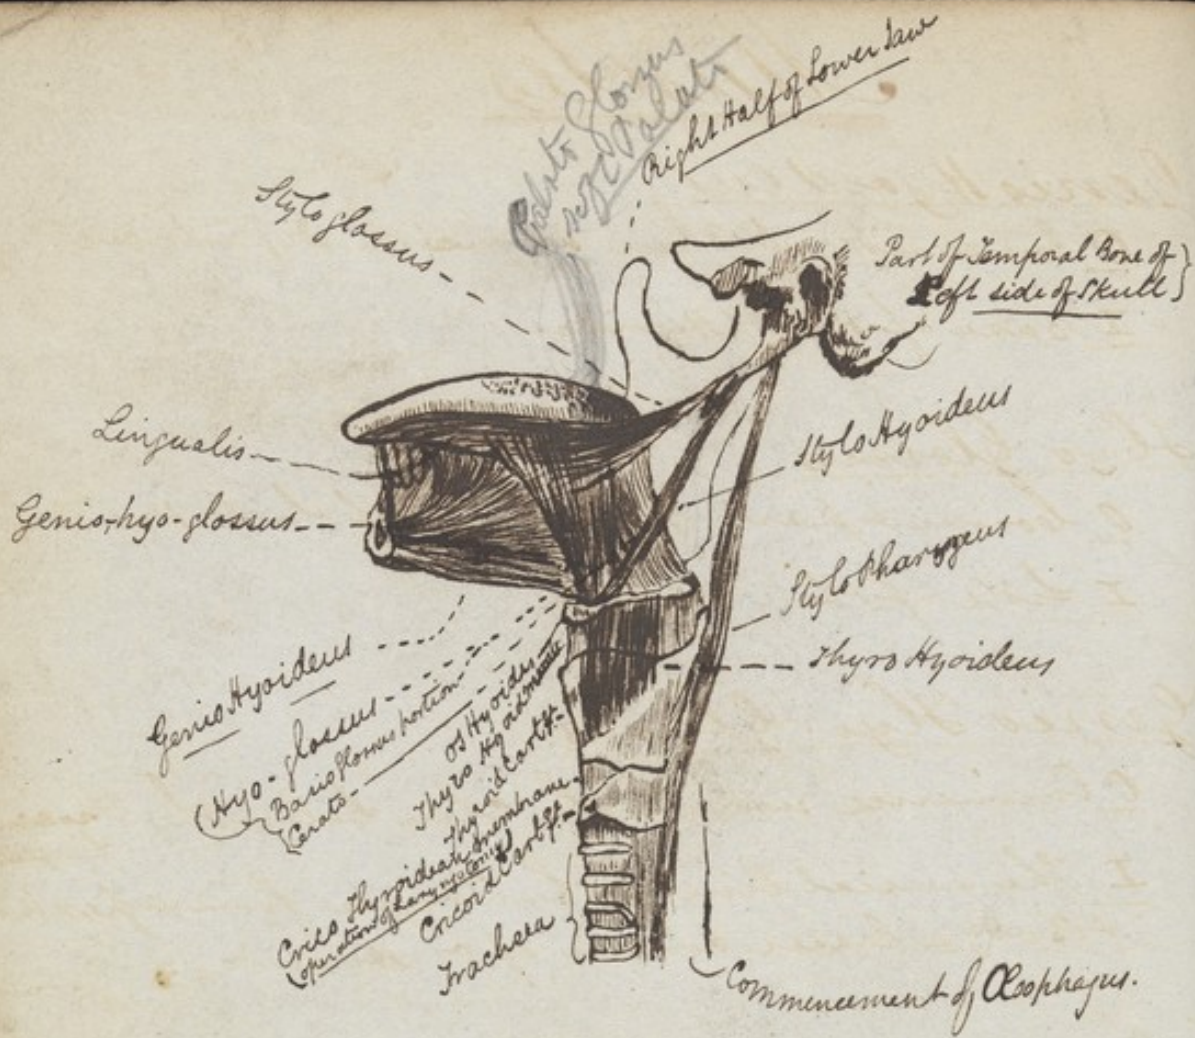 Palato Glossus
soft Palate
Right Half of Lower Jaw
Styloglossus
Part of Temporal Bone of
Left side of Skull
Lingualis
Stylo Hyoideus
Genio-hyo-glossus
Stylo Pharyngeus
Thyro Hyoideus
Genio Hyoideus
Hyo-glossus
Basio Glossus portion
Cerato-
Os Hyoides
Thyro Hyoid membrane
Thyroid Cartge.
Crico Thyroidean membrane
(operation of Laryngotomy)
Cricoid Cartge.
Trachaea
Commencement of Œsophagus.